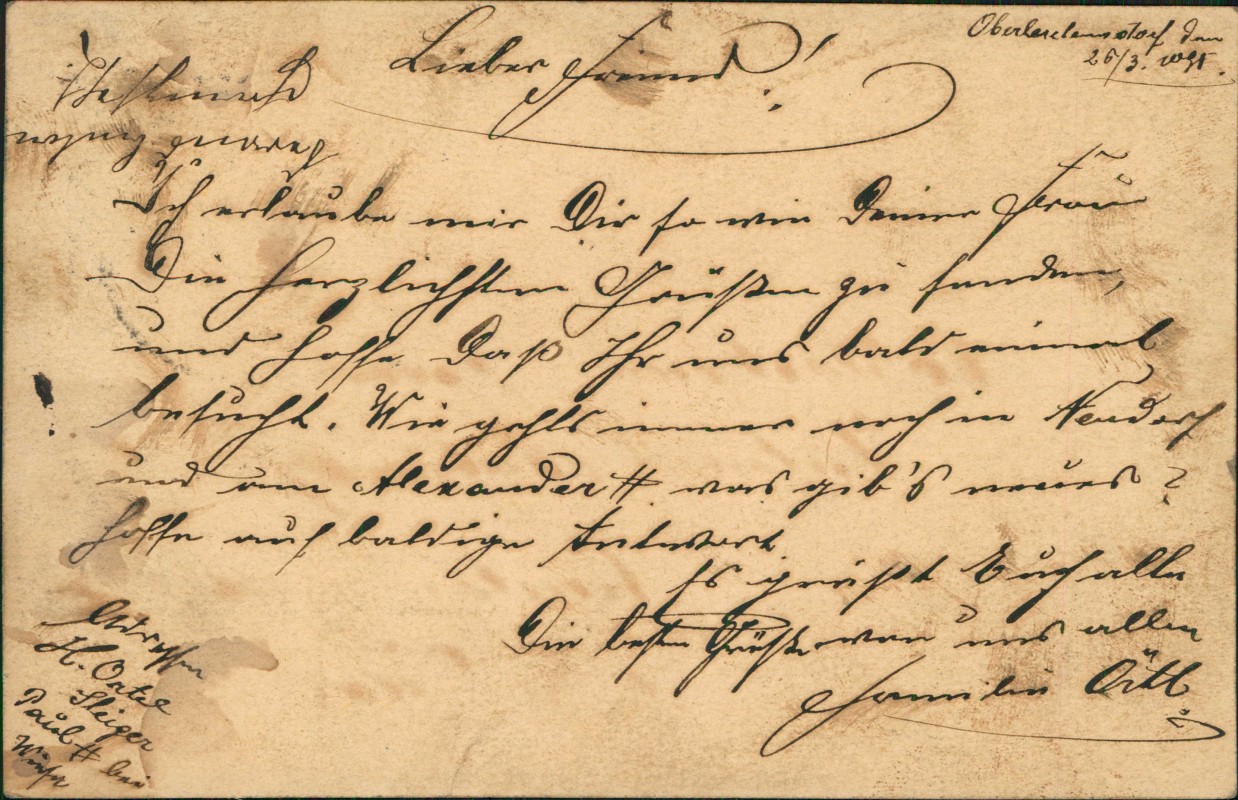 Oberleutensdorf den
26/3. 1891.
Lieber Freund!
Ich erlaube mir Dir so wie Deiner Frau
Die herzlichsten Grüßen zu senden,
und hoffe Daß Ihr uns bald einmal
besucht. Wie gehts immer noch in Neudorf
und am Alexander # was gib's neues?
hoffe auf baldige Antwort
Es grüßt Euch alle
Die besten Grüße von uns allen
Familie Örtl
Adresse
H. Oertel
Steiger
Paul # bei
Wiesa